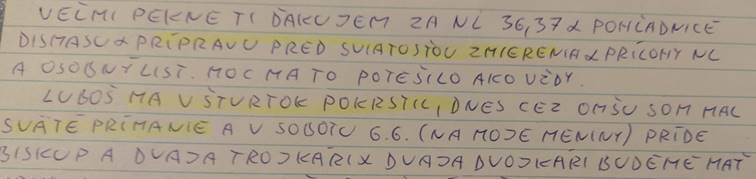 VEĽMI PEKNE TI ĎAKUJEM ZA NL 36,37 & POHĽADNICE
DISMASU & PRÍPRAVU PRED SVIATOSŤOU ZMIERENIA & PRÍLOHY NL
A OSOBNÝ LIST. MOC MA TO POTEŠILO AKO VŽDY.
LUBOŠ MA V ŠTVRTOK POKRSTIL, DNES CEZ OMŠU SOM MAL
SVÄTÉ PRIMANIE A V SOBOTU 6.6. (NA MOJE MENINY) PRÍDE
BISKUP A DVAJA TROJKÁRI & DVAJA DVOJKÁRI BUDEME MAŤ